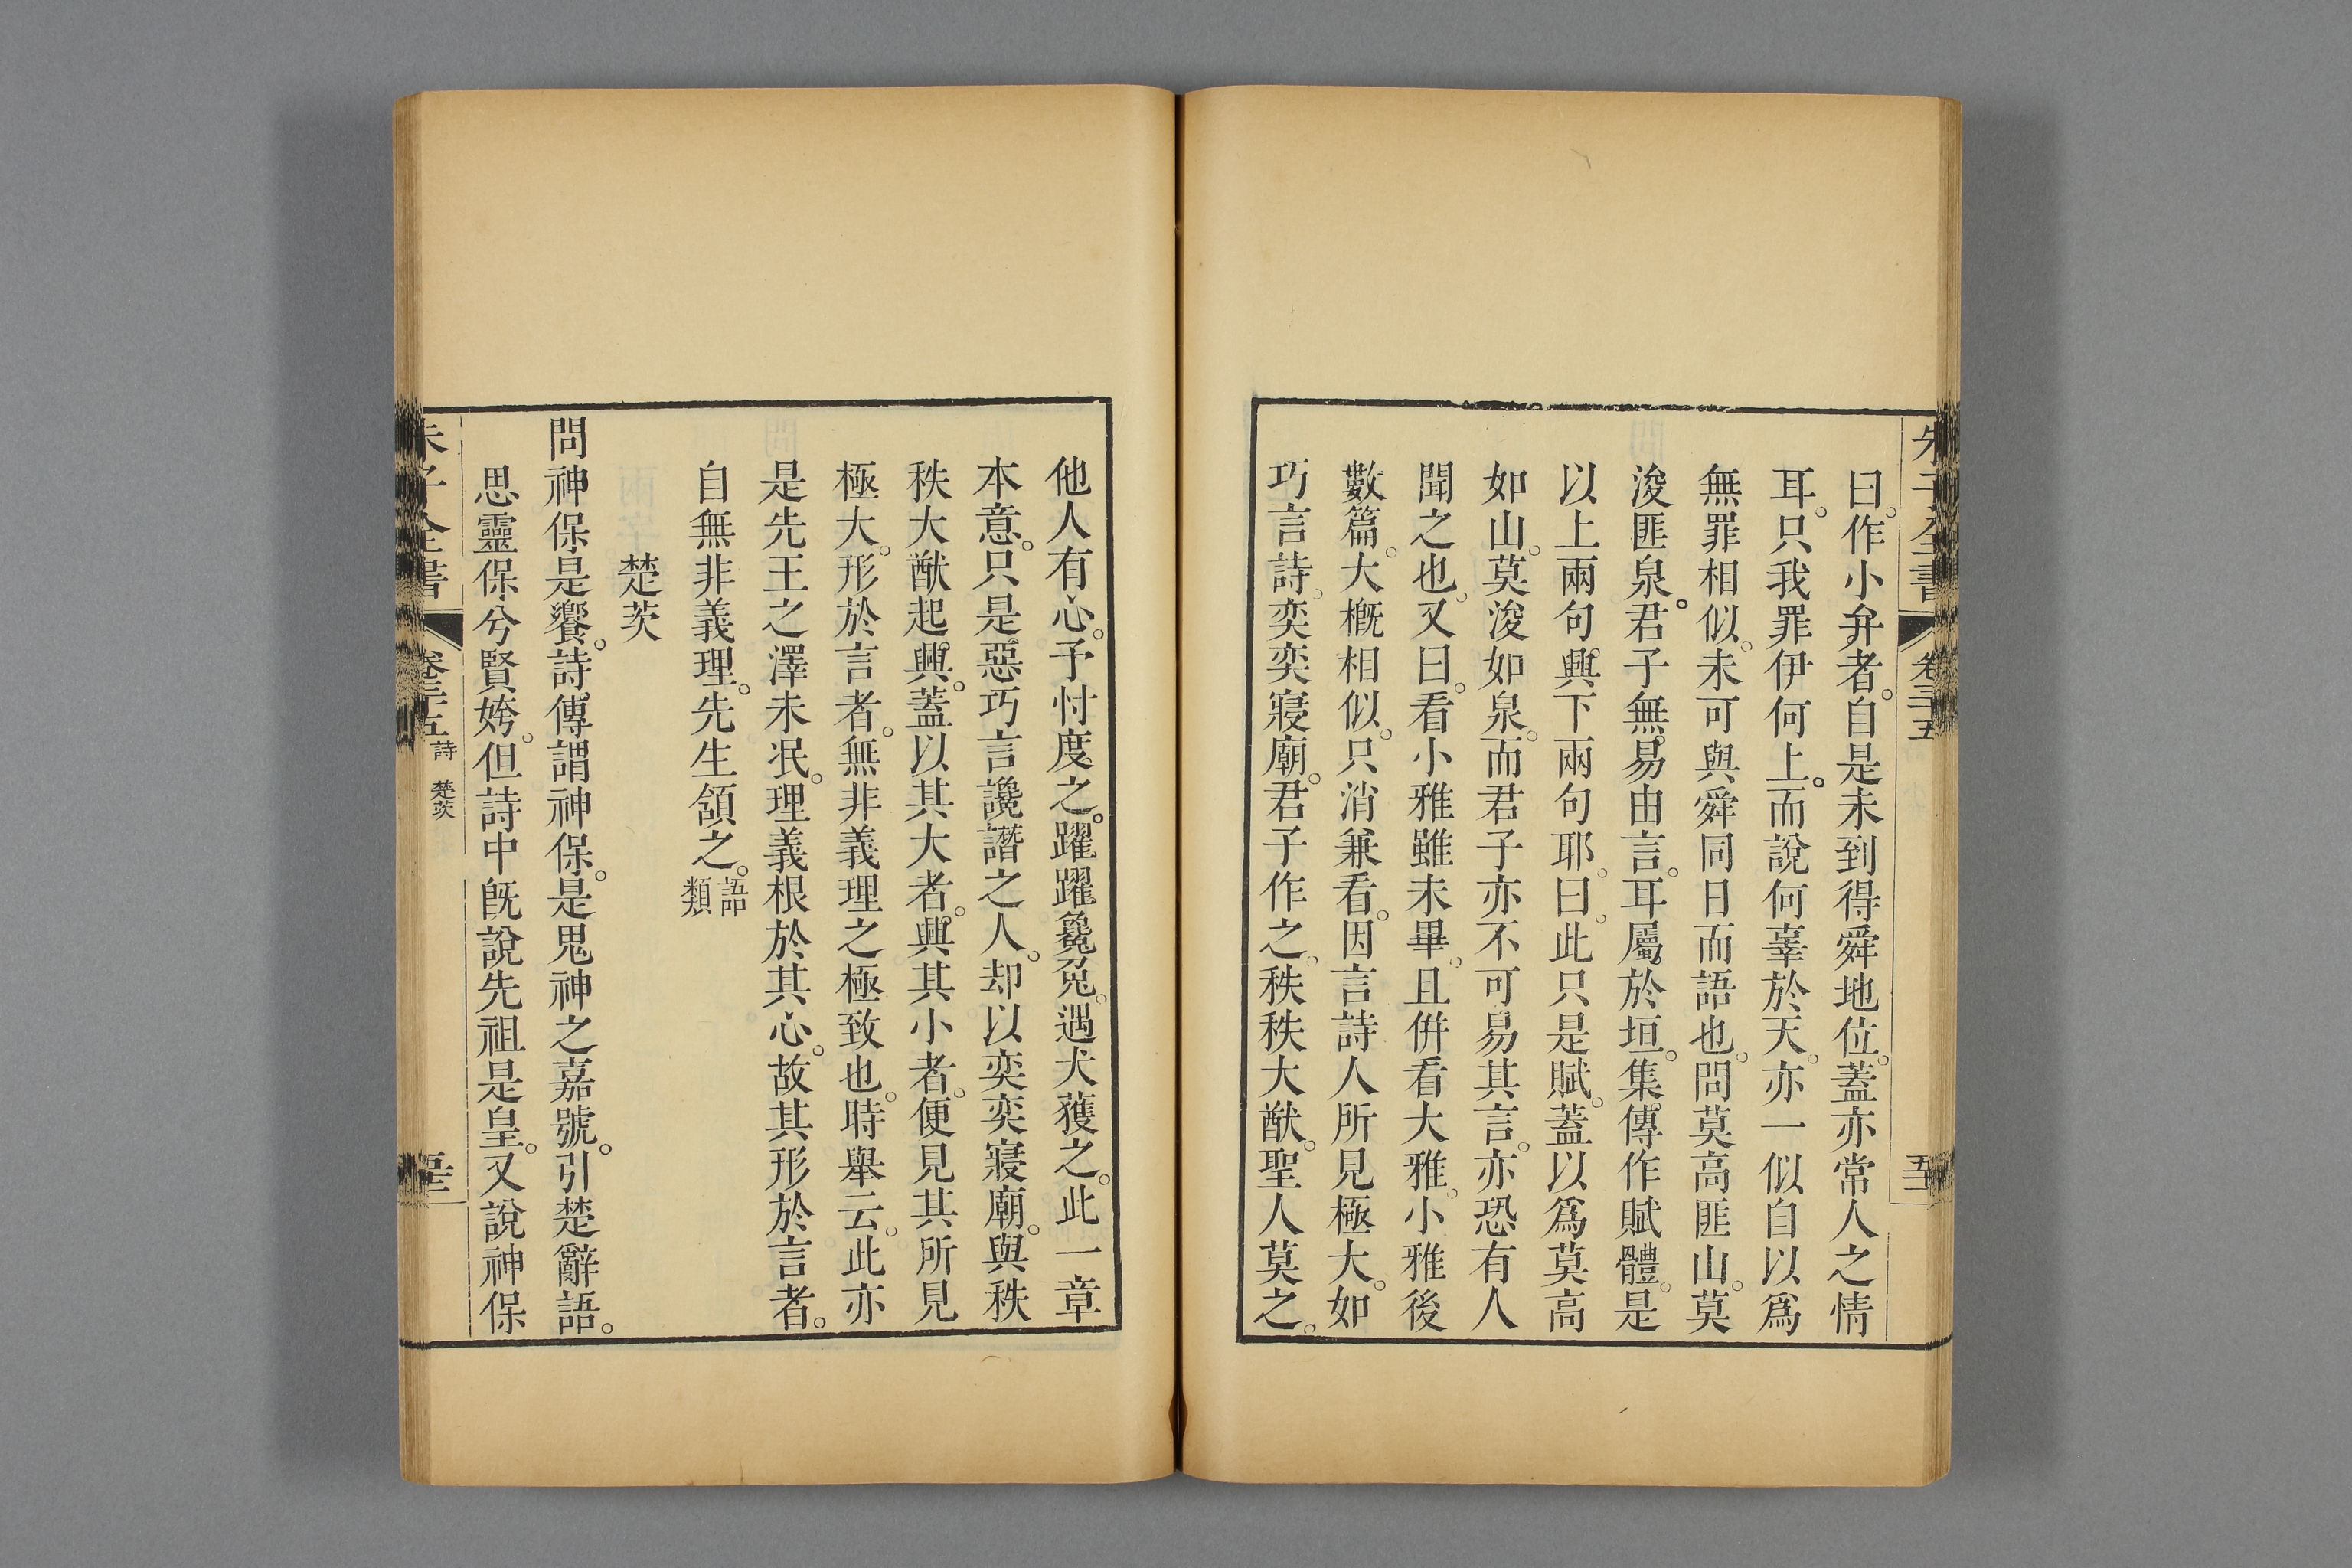 朱子全書 卷三十五
曰作小弁者自是未到得舜地位蓋亦常人之情
耳只我罪伊何上而說何辜於天亦一似自以爲
無罪相似未可與舜同日而語也問莫高匪山莫
浚匪泉君子無易由言耳屬於垣集傳作賦體是
以上兩句興下兩句耶曰此只是賦蓋以爲莫高
如山莫浚如泉而君子亦不可易其言亦恐有人
聞之也又曰看小雅雖未畢且併看大雅小雅後
數篇大概相似只消兼看因言詩人所見極大如
巧言詩奕奕寢廟君子作之秩秩大猷聖人莫之
他人有心予忖度之躍躍毚兔遇犬獲之此一章
本意只是惡巧言讒譖之人却以奕奕寢廟與秩
秩大猷起興蓋以其大者興其小者便見其所見
極大形於言者無非義理之極致也時舉云此亦
是先王之澤未泯理義根於其心故其形於言者
自無非義理先生領之語類
楚茨
問神保是饗詩傳謂神保是鬼神之嘉號引楚辭語
思靈保兮賢姱但詩中既說先祖是皇又說神保
朱子全書 卷三十五 詩 楚茨